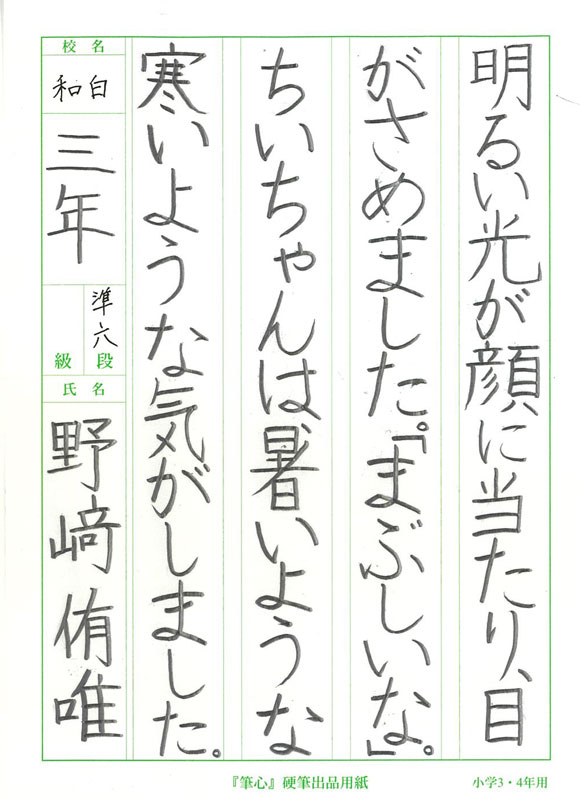 明るい光が顔に当たり、目
がさめました。「まぶしいな」。
ちいちゃんは、暑いような
寒いような気がしました。
校名
和白
三年
準六
段
級
氏名
野﨑侑唯
『筆心』硬筆出品用紙
小学3・4年用